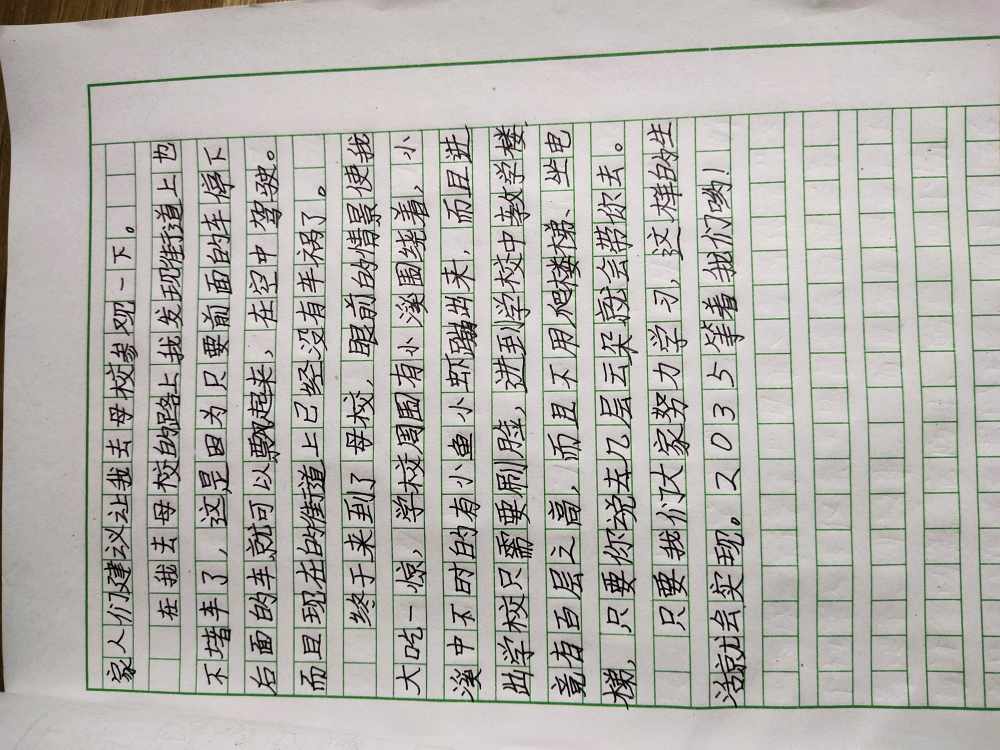 家人们建议让我去母校参观一下。
在我去母校的路上我发现街道上也
不堵车了，这是因为只要前面的车停下
后面的车就可以飘起来，在空中驾驶。
而且现在的街道上已经没有车祸了。
终于来到了母校，眼前的情景使我
大吃一惊，学校周围有小溪围绕着，小
溪中不时的有小鱼小虾蹦出来，而且进
出学校只需要刷脸，进到学校中教学楼
竟有百层之高，而且不用爬楼梯、坐电
梯，只要你说去几层云朵就会带你去。
只要我们大家努力学习，这样的生
活就会实现。2035等着我们哟！